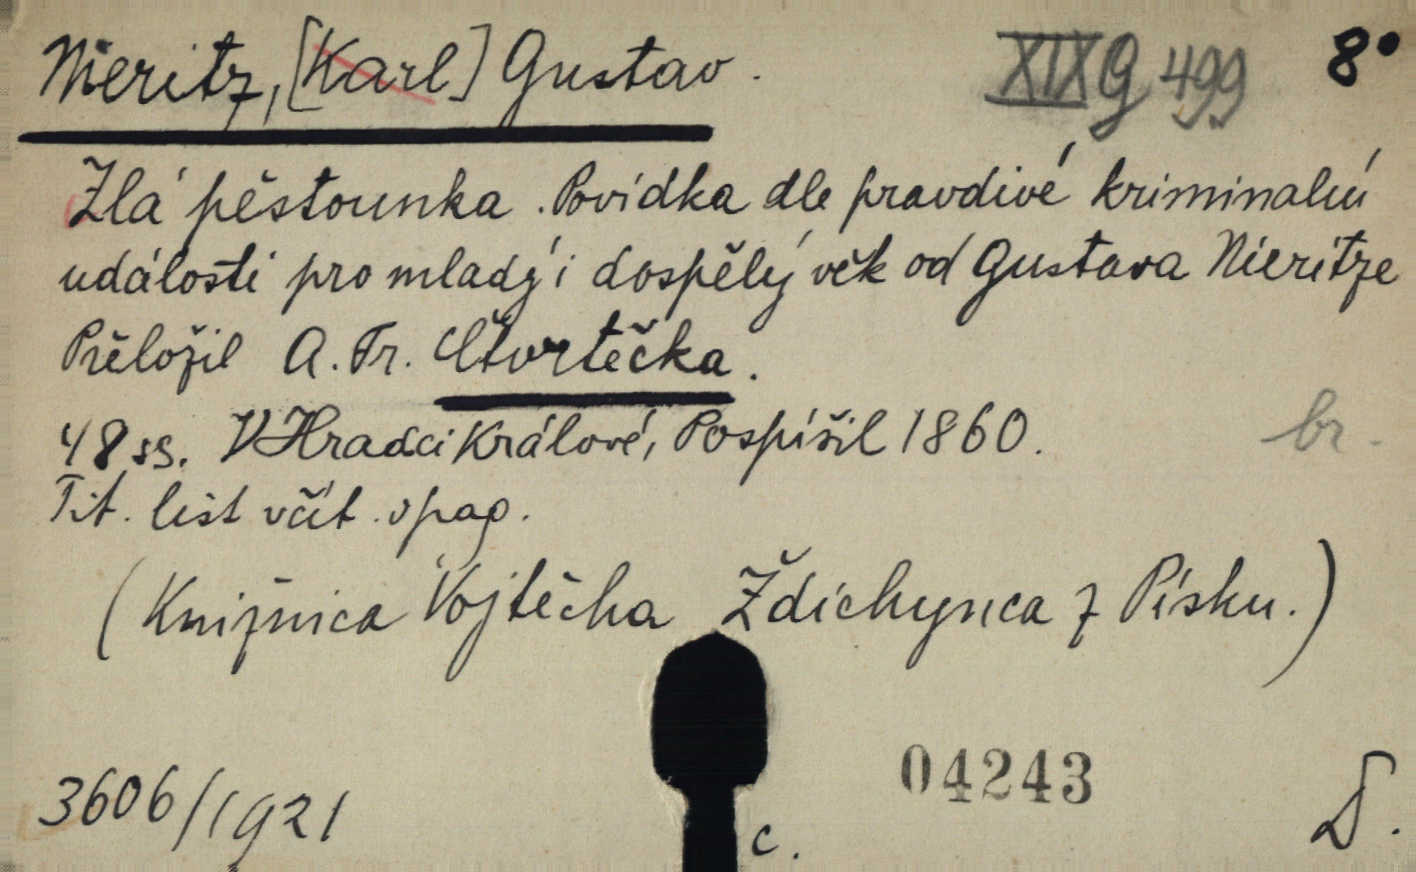 Nieritz, [Karl] Gustav. XIX G 499 8°
Zlá pěstounka. Povídka dle pravdivé kriminalní
události pro mladý i dospělý věk od Gustava Nieritze
Přeložil A. Fr. Čtvrtečka.
48 ss. V Hradci Králové, Pospíšil 1860. br.
Tit. list včít. v pag.
(Knižnica Vojtěcha Ždichynca z Písku.)
3606/1921 04243
c.